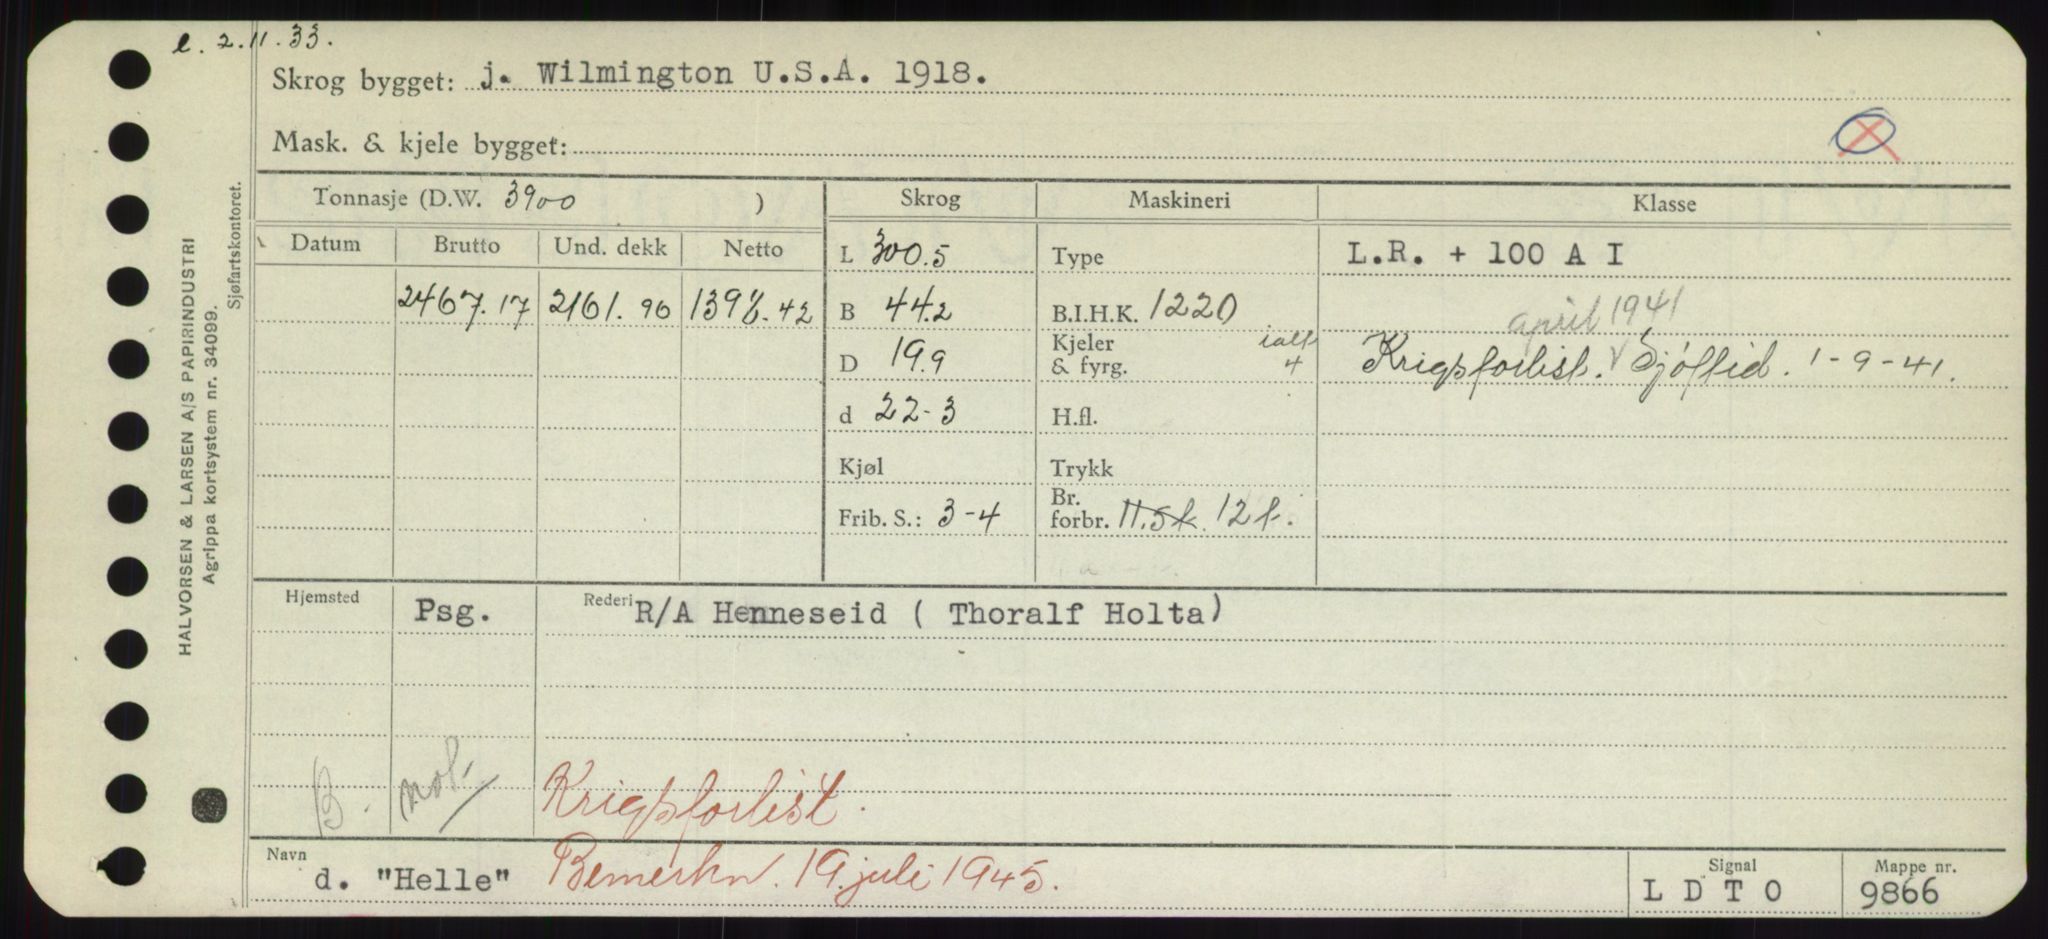 e. 2.11.33.
Skrog bygget: j. Wilmington U.S.A. 1918.
Mask. & kjele bygget:
Tonnasje (D.W. 3900 )
Skrog
Maskineri
Klasse
Datum
Brutto
Und. dekk
Netto
2467.17
2161.96
1398.42
L 300.5
B 44.2
D 19.9
d 22-3
Kjøl
Frib. S.: 3-4
Type
B.I.H.K. 1220
Kjeler ialt
& fyrg. 4
H.fl.
Trykk
Br.
forbr. 11.5t. 12t.
L.R. + 100 A I
april 1941
Krigsforlist. Sjøftid. 1-9-41.
Hjemsted Psg. Rederi R/A Henneseid ( Thoralf Holta)
B. not. Krigsforlist.
Navn d. "Helle" Bemerkn. 19. juli 1945.
Signal
L D T O
Mappe nr.
9866
HALVORSEN & LARSEN A/S PAPIRINDUSTRI
Agrippa kortsystem nr. 34099.
Sjøfartskontoret.